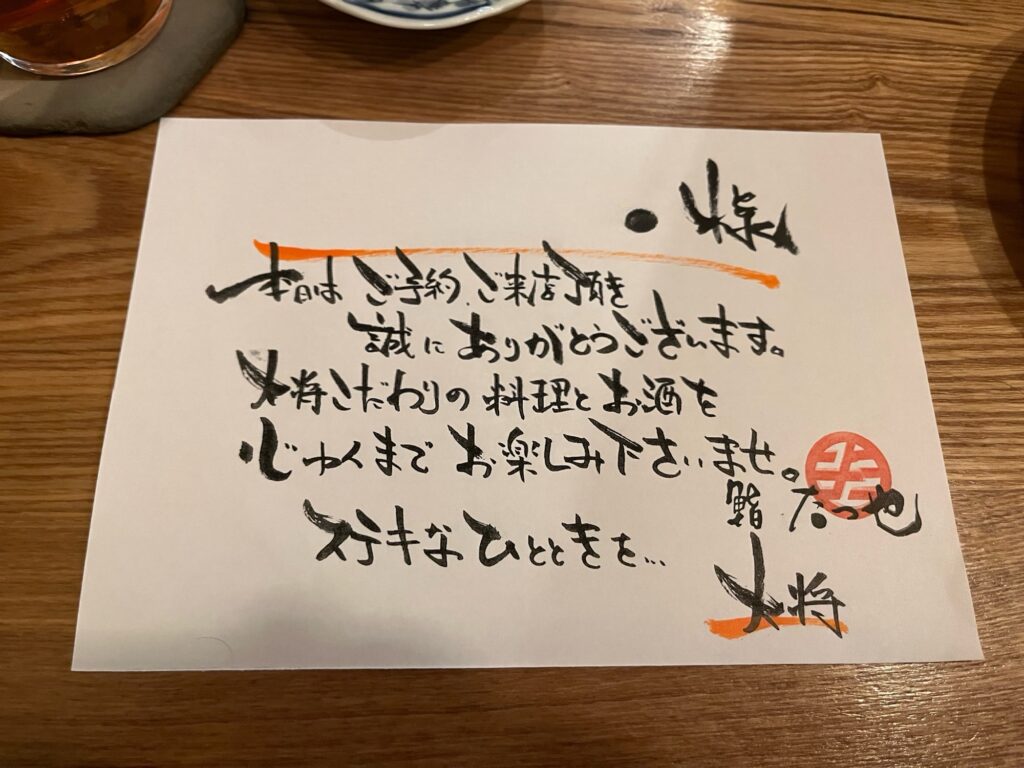 ● 様
本日は ご予約、ご来店頂き
誠に ありがとうございます。
大将こだわりの 料理と お酒を
心じゅくまで お楽しみ下さいませ。
鮨 たつや
ステキな ひとときを...
大将